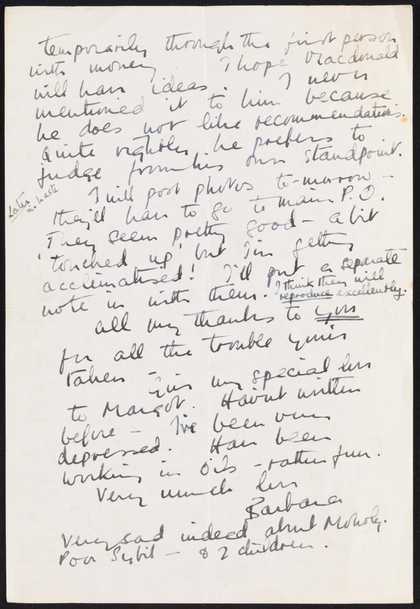 temporarily through the first person
with money. I hope Macdonald
will have ideas. I never
mentioned it to him because
he does not like recommendations.
Quite rightly, he prefers to
judge from his own standpoint.
I will post photos to-morrow –
Later
they'll have to go to main P.O.
They seem pretty good – a bit
'touched up' but I'm getting
acclimatised! I'll put a separate
note in with them. I think they will
reproduce excellently.
all my thanks to you
for all the trouble you've
taken –
Give my special love
to Margot. Havn't written
before – I've been very
depressed. Have been
working in oils – rather fun.
Very much love
Barbara
Very sad indeed about Moholy.
Poor Sybil – & 2 children.